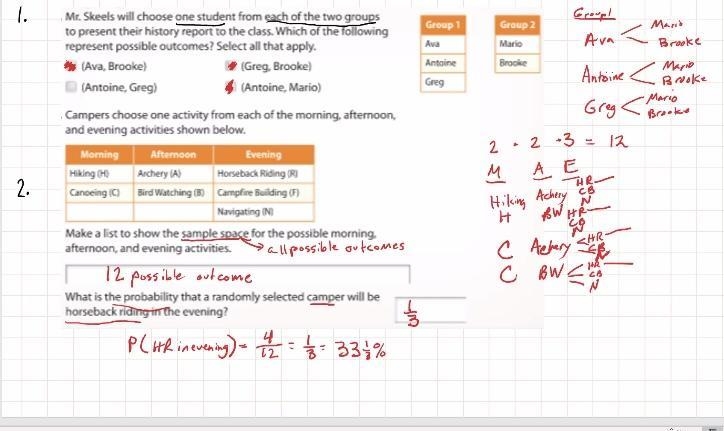 1.
Mr. Skeels will choose one student from each of the two groups
to present their history report to the class. Which of the following
represent possible outcomes? Select all that apply.
(Ava, Brooke) (Greg, Brooke)
(Antoine, Greg) (Antoine, Mario)
Group 1
Ava
Antoine
Greg
Group 2
Mario
Brooke
Group 1
Ava Mario
Brooke
Antoine Mario
Brooke
Greg Mario
Brooke
2.
Campers choose one activity from each of the morning, afternoon,
and evening activities shown below.
Morning Afternoon Evening
Hiking (H) Archery (A) Horseback Riding (R)
Canoeing (C) Bird Watching (B) Campfire Building (F)
Navigating (N)
Make a list to show the sample space for the possible morning,
afternoon, and evening activities. → all possible outcomes
12 possible outcome
What is the probability that a randomly selected camper will be
horseback riding in the evening?
1/3
P(HR in evening) = 4/12 = 1/3 = 33 1/3%
2 · 2 · 3 = 12
M A E
HR
Hiking Achery CB
N
H BW HR
CB
N
C Achery HR
CB
N
C BW HR
CB
N